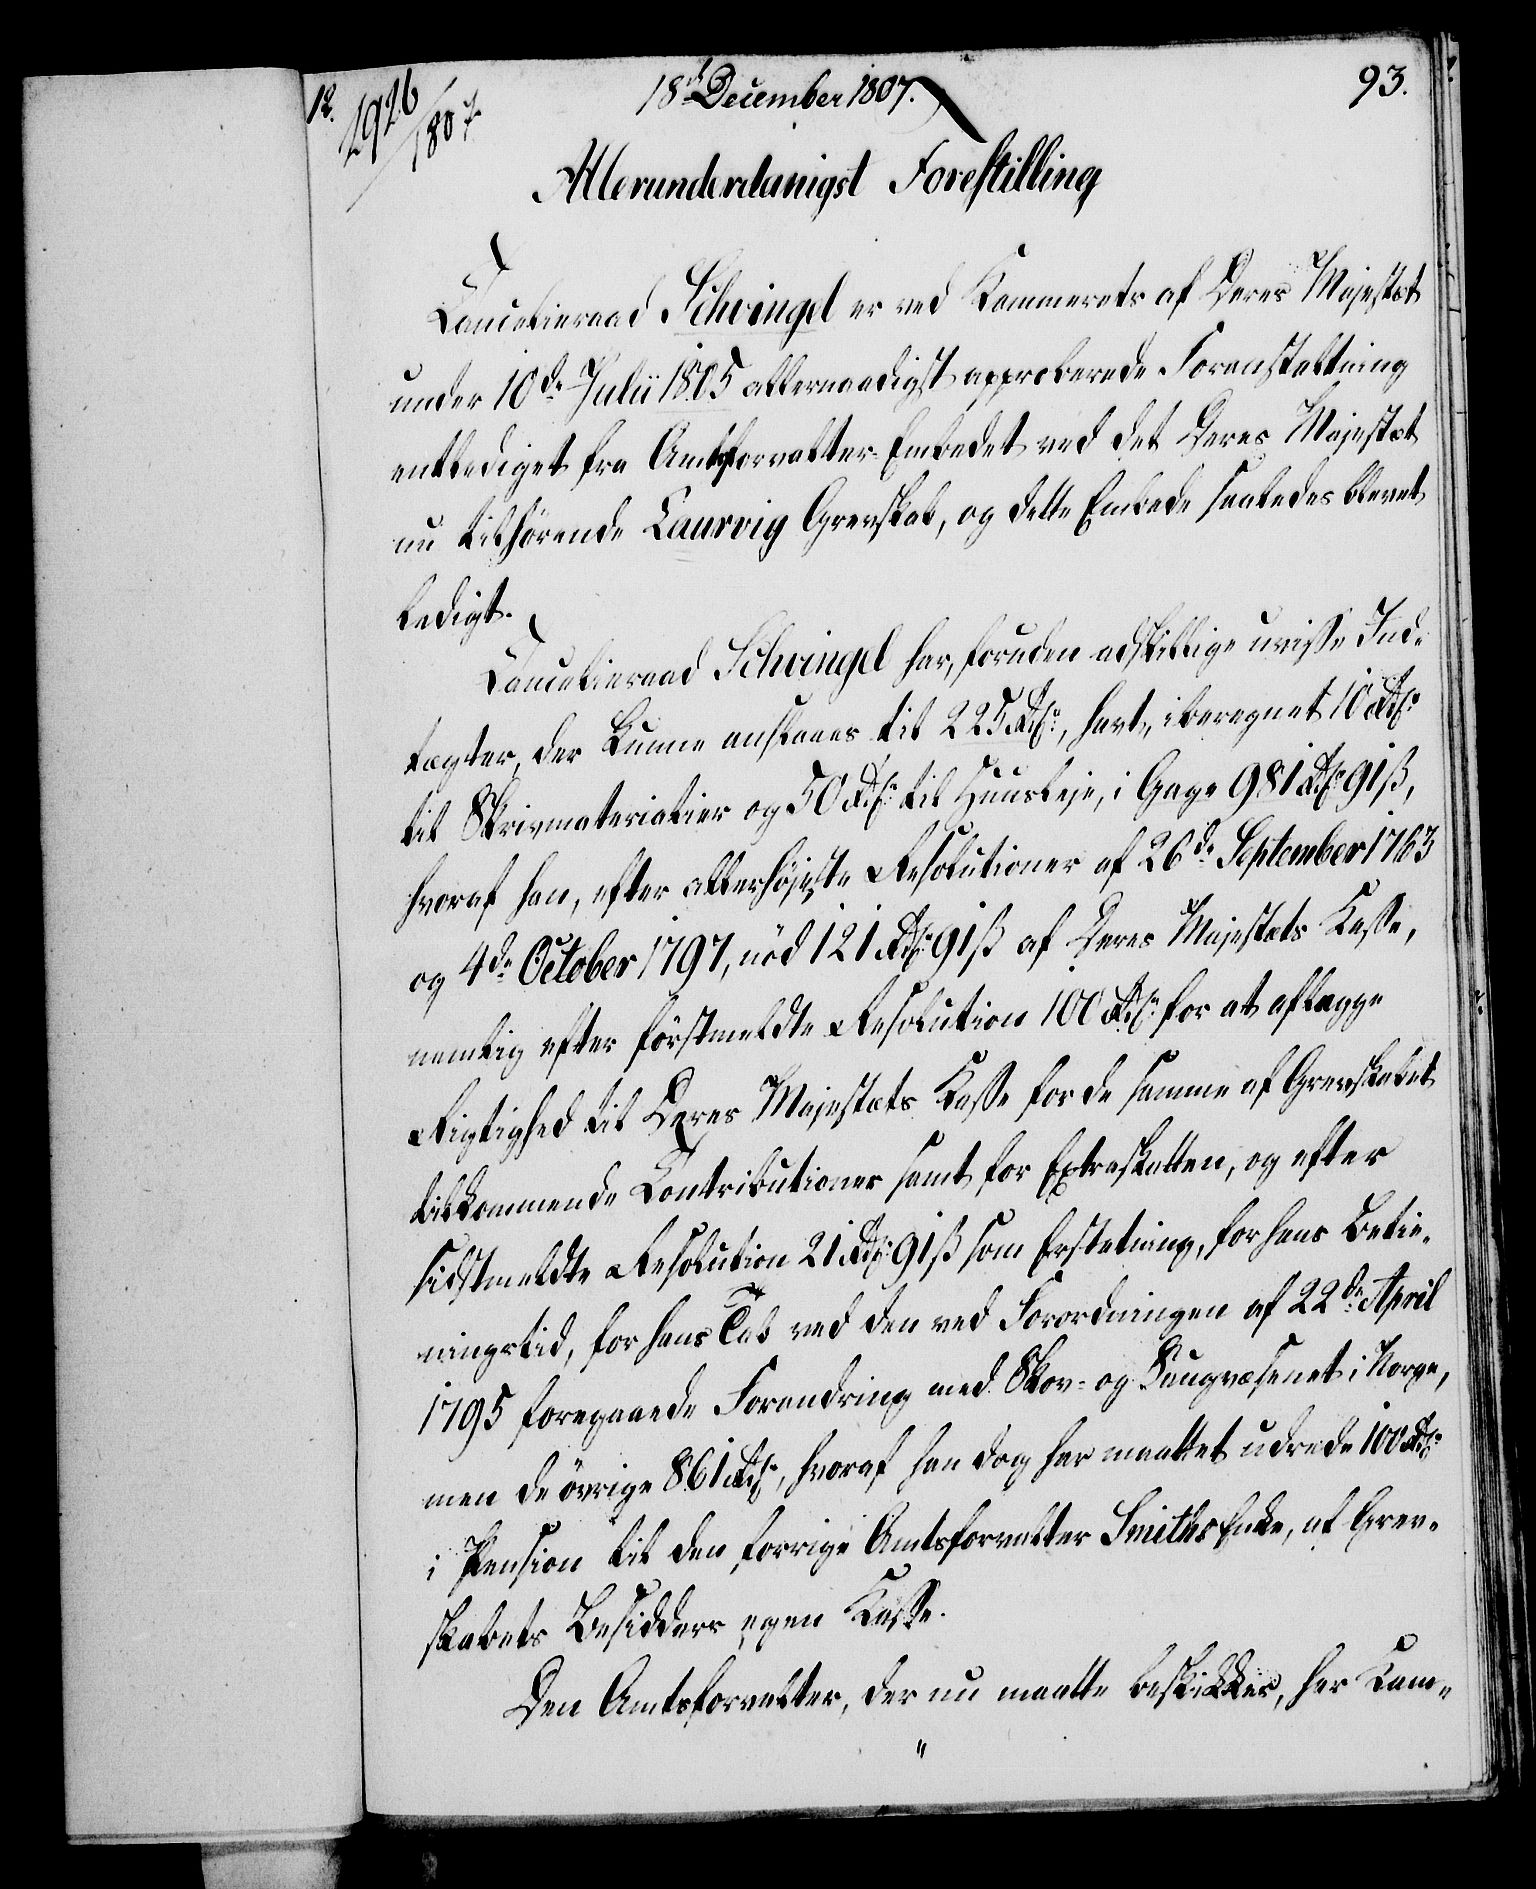 12.
1926/1807
18d. December 1807.
93.
Allerunderdanigst Forestilling
Cancelieraad Schvingel er ved Kammerets af Deres Majestæt
under 10de Julii 1805 allernaadigst approberede Foranstaltning
entlediget fra Amtsforvalter-Embedet ved det Deres Majestæt
nu tilhörende Laurvig Grevskab, og dette Embede saaledes blevet
ledigt.
Cancelieraad Schvingel har, foruden adskillige uvisse Ind-
tægter, der kunne anslaaes til 225 Rdlr., havt, iberegnet 10 Rdlr.
til Skrivmaterialier og 50 Rdlr. til Huusleje, i Gage 981 Rdlr. 91 ß,
hvoraf han, efter allerhöjeste Resolutioner af 26de September 1763
og 4de October 1797, nöd 121 Rdlr. 91 ß af Deres Majestæts Kasse,
nemlig efter förstmeldte Resolution 100 Rdlr. for at aflægge
Rigtighed til Deres Majestæts Kasse for de samme af Grevskabet
tilkommende Contributioner samt for Extraskatten, og efter
sidstmeldte Resolution 21 Rdlr. 91 ß som Erstatning, for hans Betie-
ningstid, for hans Tab ved den ved Forordningen af 22de April
1795 foregaaede Forandring med Skov- og Saugvæsenet i Norge,
men de övrige 861 Rdlr., hvoraf han dog har maattet udrede 100 Rdlr.
i Pension til den forrige Amtsforvalter Smiths Enke, af Grev-
skabets Besidders egen Kasse.
Den Amtsforvalter, der nu maatte beskikkes, har Kam-
"